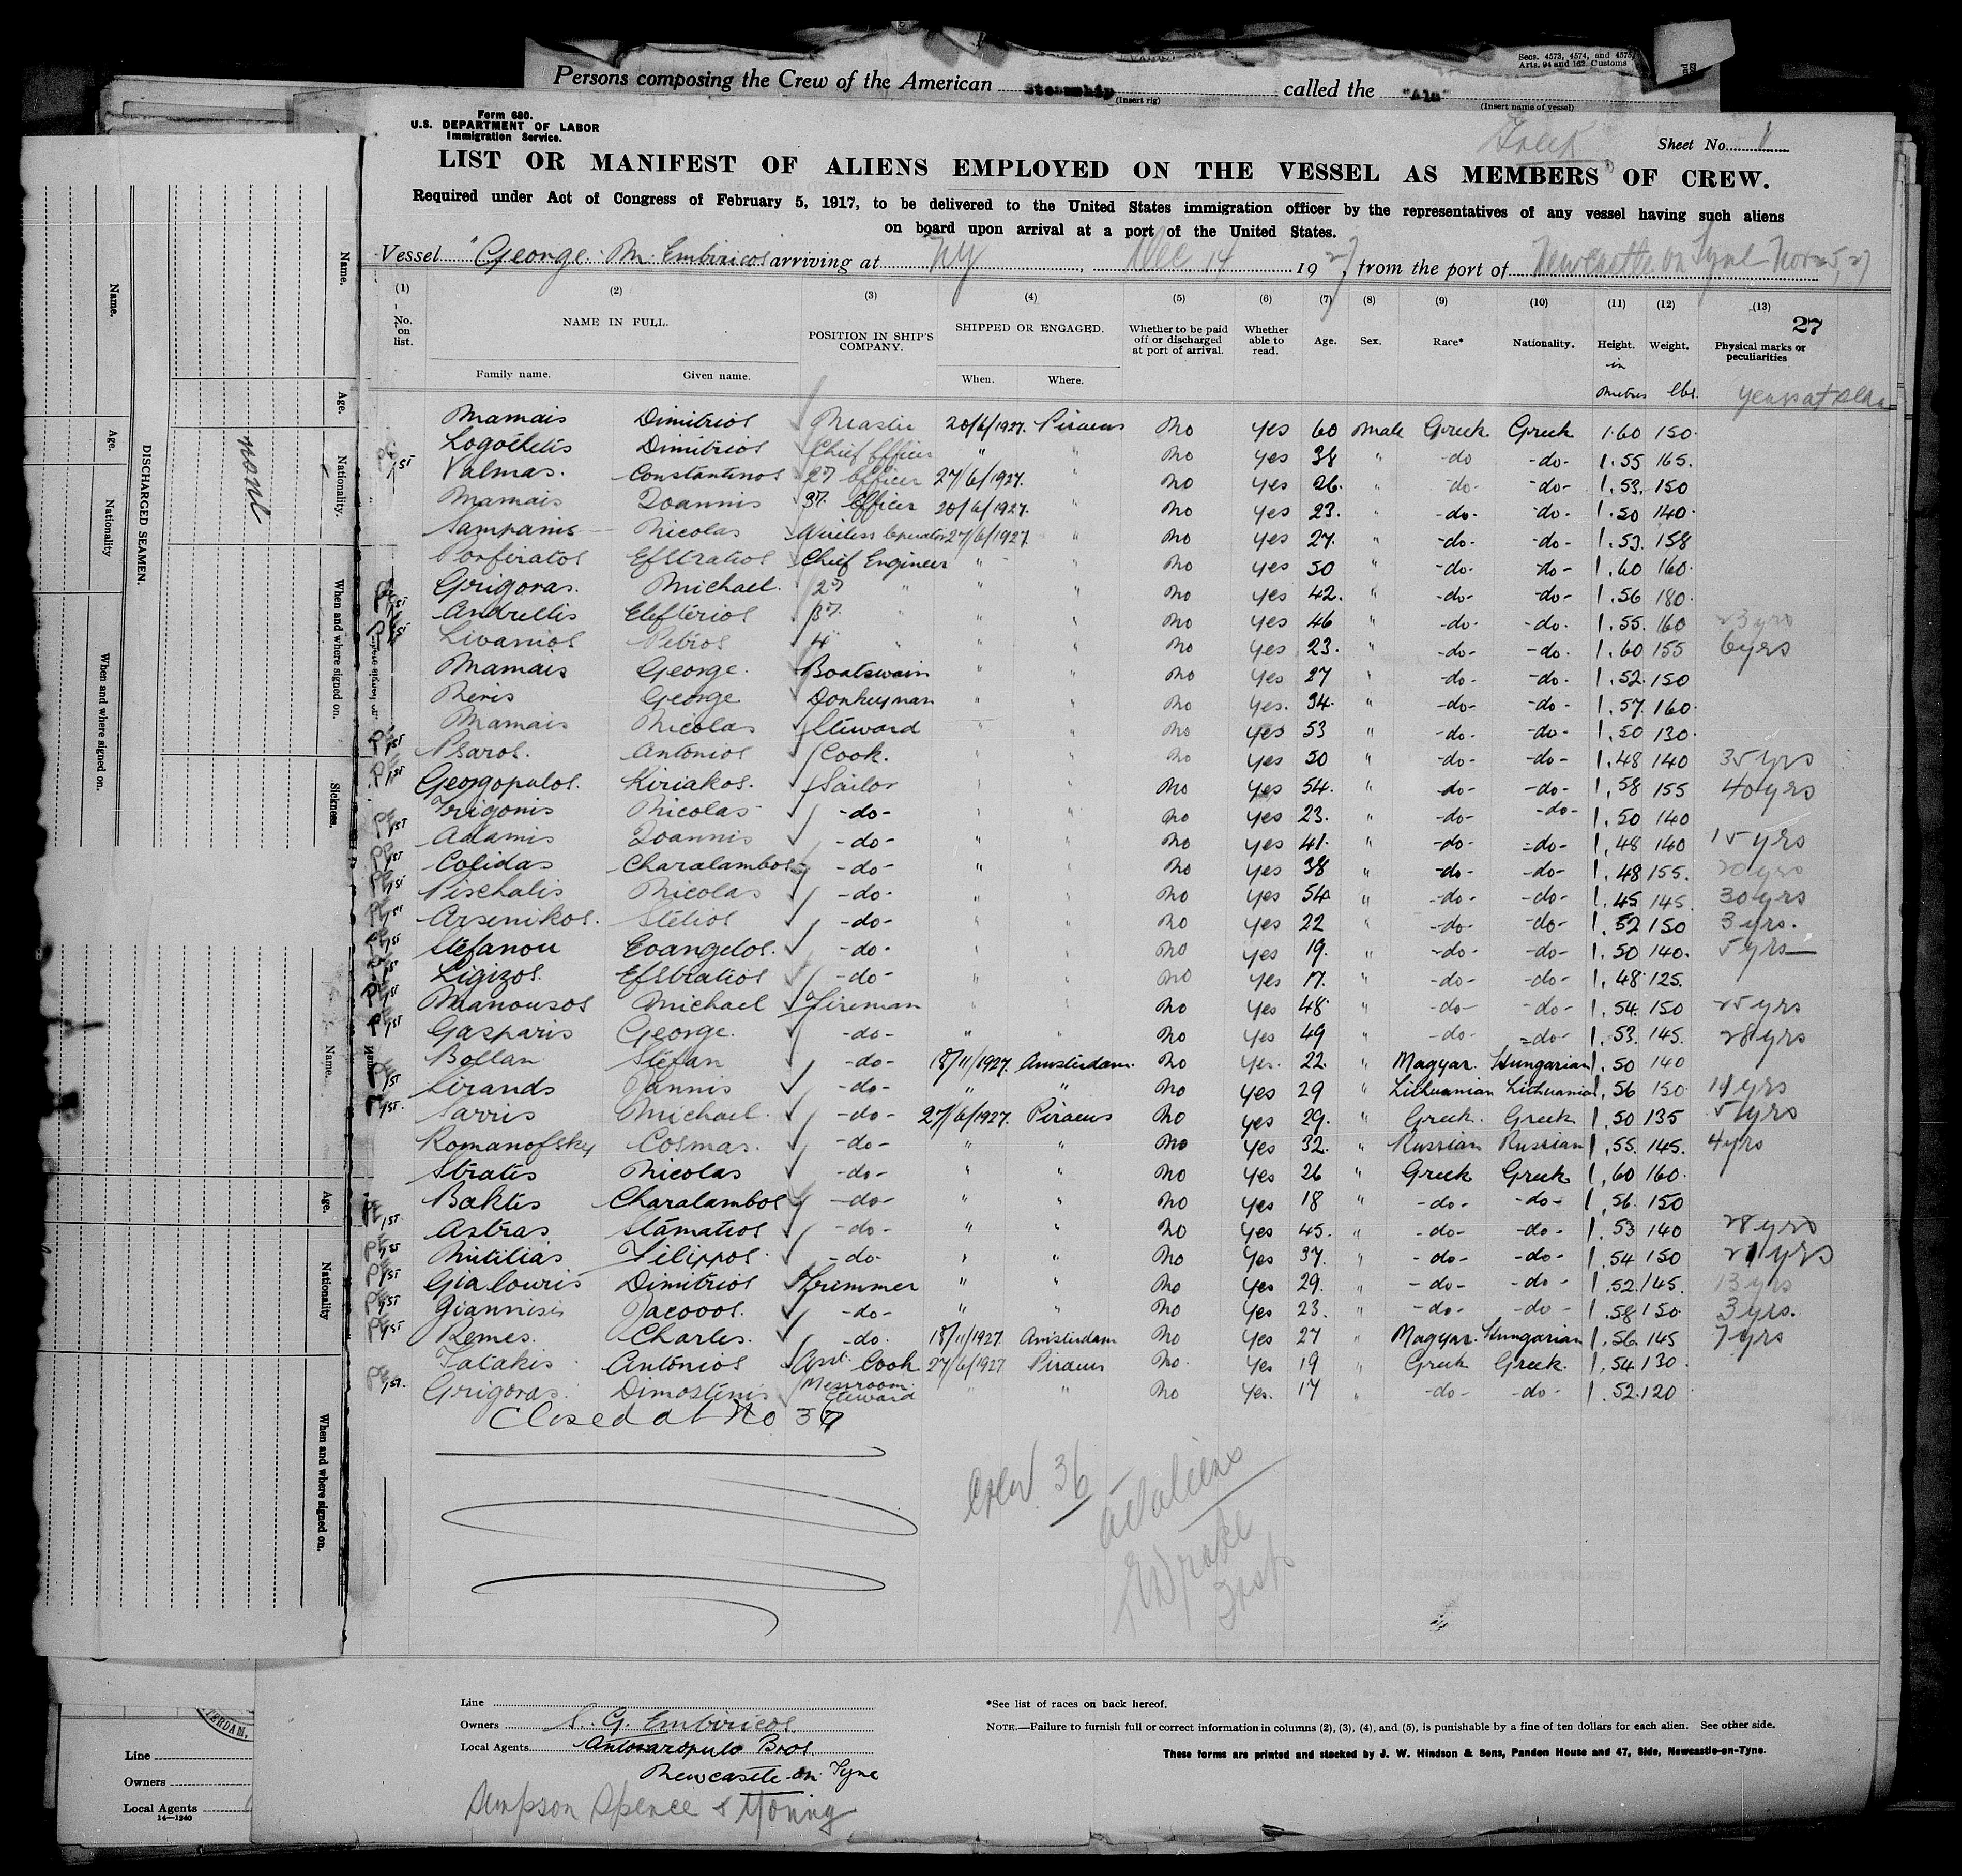 Secs. 4573, 4574, and 4575
Arts. 94 and 162. Customs
Persons composing the Crew of the American Steamship called the "Ala"
(Insert rig) (Insert name of vessel)
Form 680.
U.S. DEPARTMENT OF LABOR
Immigration Service.
Greek
Sheet No. 1
LIST OR MANIFEST OF ALIENS EMPLOYED ON THE VESSEL AS MEMBERS OF CREW.
Required under Act of Congress of February 5, 1917, to be delivered to the United States immigration officer by the representatives of any vessel having such aliens
on board upon arrival at a port of the United States.
Vessel "George M. Embiricos arriving at NY, Dec 14 1927, from the port of Newcastle on Tyne Nov 25, 27
(1) (2) (3) (4) (5) (6) (7) (8) (9) (10) (11) (12) (13)
27
No. on list. NAME IN FULL. POSITION IN SHIP'S COMPANY. SHIPPED OR ENGAGED. Whether to be paid off or discharged at port of arrival. Whether able to read. Age. Sex. Race* Nationality. Height. in metres Weight. lbs. Physical marks or peculiarities
Family name. Given name. When. Where. years at sea
Mamais Dimitrios Master 20/6/1927. Piraeus No Yes 60 Male Greek Greek 1.60 150
Logothetis Dimitrios Chief Officer " " No Yes 38 " -do -do- 1.55 165.
Valmas. Constantinos 2? Officer 27/6/1927. No Yes 26. " -do- -do- 1.53. 150
Mamais Ioannis 3? Officer 20/6/1927. " No Yes 23. " -do- -do- 1.50 140
Sampanis Nicolas Wireless Operator 27/6/1927 " No Yes 27. " -do- -do- 1.53. 158
Porfiratos Efstratios Chief Engineer " " No Yes 50 " -do- -do- 1.60 160
Grigoras. Michael. 2? " " " No Yes 42. " -do- -do- 1.56 180
Andrellis Elefterios 3? " " " No Yes 46 " -do- -do- 1.55. 160 23 yrs
Livanios Petros 4 " " " No Yes 23. " -do- -do- 1.60 155 6 yrs
Mamais George. Boatswain " " No Yes 27 " -do- -do- 1.52. 150
Neris George Donkeyman " " No Yes. 34. " -do- -do- 1.57. 160
Mamais Nicolas Steward " " No Yes 53 " -do- -do- 1.50 130
Psaros. Antonios Cook. " " No Yes 50 " -do- -do- 1.48 140 35 yrs
Georgopulos. Kiriakos. Sailor " " No Yes 54. " -do- -do- 1.58 155 40 yrs
Trigonis Nicolas -do- " " No Yes 23. " -do- -do- 1.50 140
Adamis Ioannis -do- " " No Yes 41. " -do- -do- 1.48 140 15 yrs
Colidas Charalambos -do- " " No Yes 38 " -do- -do- 1.48 155. 20 yrs
Pischalis Nicolas -do- " " No Yes 54 " -do- -do- 1.45 145. 30 yrs
Arsenikos. Stelios -do- " " No Yes 22 " -do- -do- 1.52 150 3 yrs.
Stefanou Evangelos. -do- " " No Yes 19. " -do- -do- 1.50 140. 5 yrs
Ligizos. Efstratios -do- " " No Yes 17. " -do- -do- 1.48 125.
Manousos Michael Fireman " " No Yes 48 " -do- -do- 1.54. 150 25 yrs
Gasparis George. -do- " " No Yes 49 " -do- -do- 1.53. 145. 28 yrs
Bollan Stefan -do- 18/11/1927. Amsterdam. No Yes. 22. " Magyar. Hungarian 1.50 140
Lirands Jannis -do- " " No Yes 29 " Lithuanian Lithuanian 1.56 150 14 yrs
Sarris Michael. -do- 27/6/1927. Piraeus No Yes 29. " Greek. Greek 1.50 135 5 yrs
Romanofsky Cosmas. -do- " " No Yes 32. " Russian Russian 1.55. 145. 4 yrs
Stratis Nicolas -do- " " No Yes 26 " Greek Greek 1.60 160.
Baktis Charalambos -do- " " No Yes 18 " -do- -do- 1.56. 150
Astras Stamatios -do- " " No Yes 45. " -do- -do- 1.53 140 28 yrs
Mitilias Filippos. -do- " " No Yes 37. " -do- -do- 1.54 150 21 yrs
Gialouris Dimitrios Trimmer " " No Yes 29. " -do- -do- 1.52. 145. 13 yrs
Giannisis Jacovos. -do- " " No Yes 23. " -do- -do- 1.58 150 3 yrs.
Remes. Charles. -do. 18/11/1927. Amsterdam No Yes 27 " Magyar. Hungarian 1.56. 145 7 yrs
Tatakis Antonios Asst. Cook. 27/6/1927 Piraeus No. Yes 19 " Greek Greek. 1.54. 130.
Grigoras. Dimostenis Messroom Steward " " No Yes. 17 " -do- -do- 1.52. 120
Closed at No 37
Crew 36
all aliens
Drake
Insp
Line
Owners S. G. Embiricos
Local Agents Bros.
Newcastle-on-Tyne
Simpson Spence & Young
*See list of races on back hereof.
NOTE.—Failure to furnish full or correct information in columns (2), (3), (4), and (5), is punishable by a fine of ten dollars for each alien. See other side.
These forms are printed and stocked by J. W. Hindson & Sons, Pandon House and 47, Side, Newcastle-on-Tyne.
DISCHARGED SEAMEN.
Name. Age. Nationality. When and where signed on. Sickness.
none
Name. Age. Nationality When and where signed on.
Name. Age. Nationality When and where signed on.
TERDAM,
Line
Owners
Local Agents
14—1240